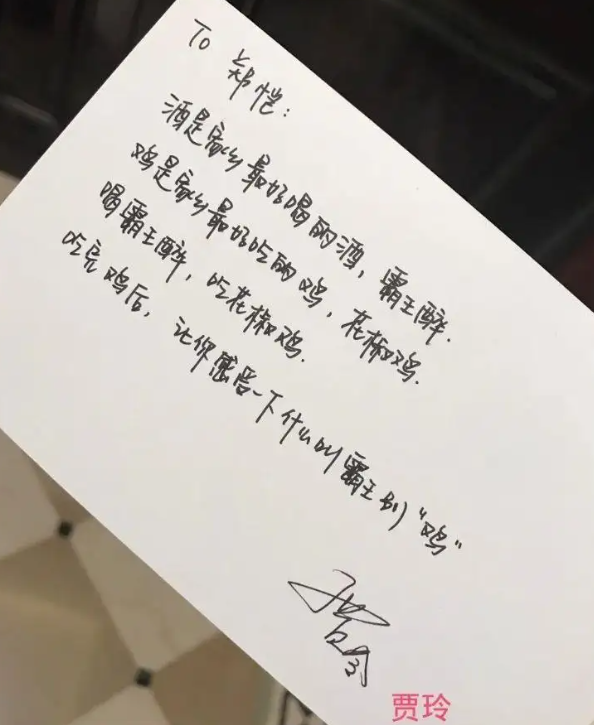 To 郑恺:
酒是家乡最好喝的酒，霸王醉.
鸡是家乡最好吃的鸡，花椒鸡.
喝霸王醉，吃花椒鸡.
吃完鸡后，让你感告一下什么叫霸王别“鸡”
贾玲
贾玲